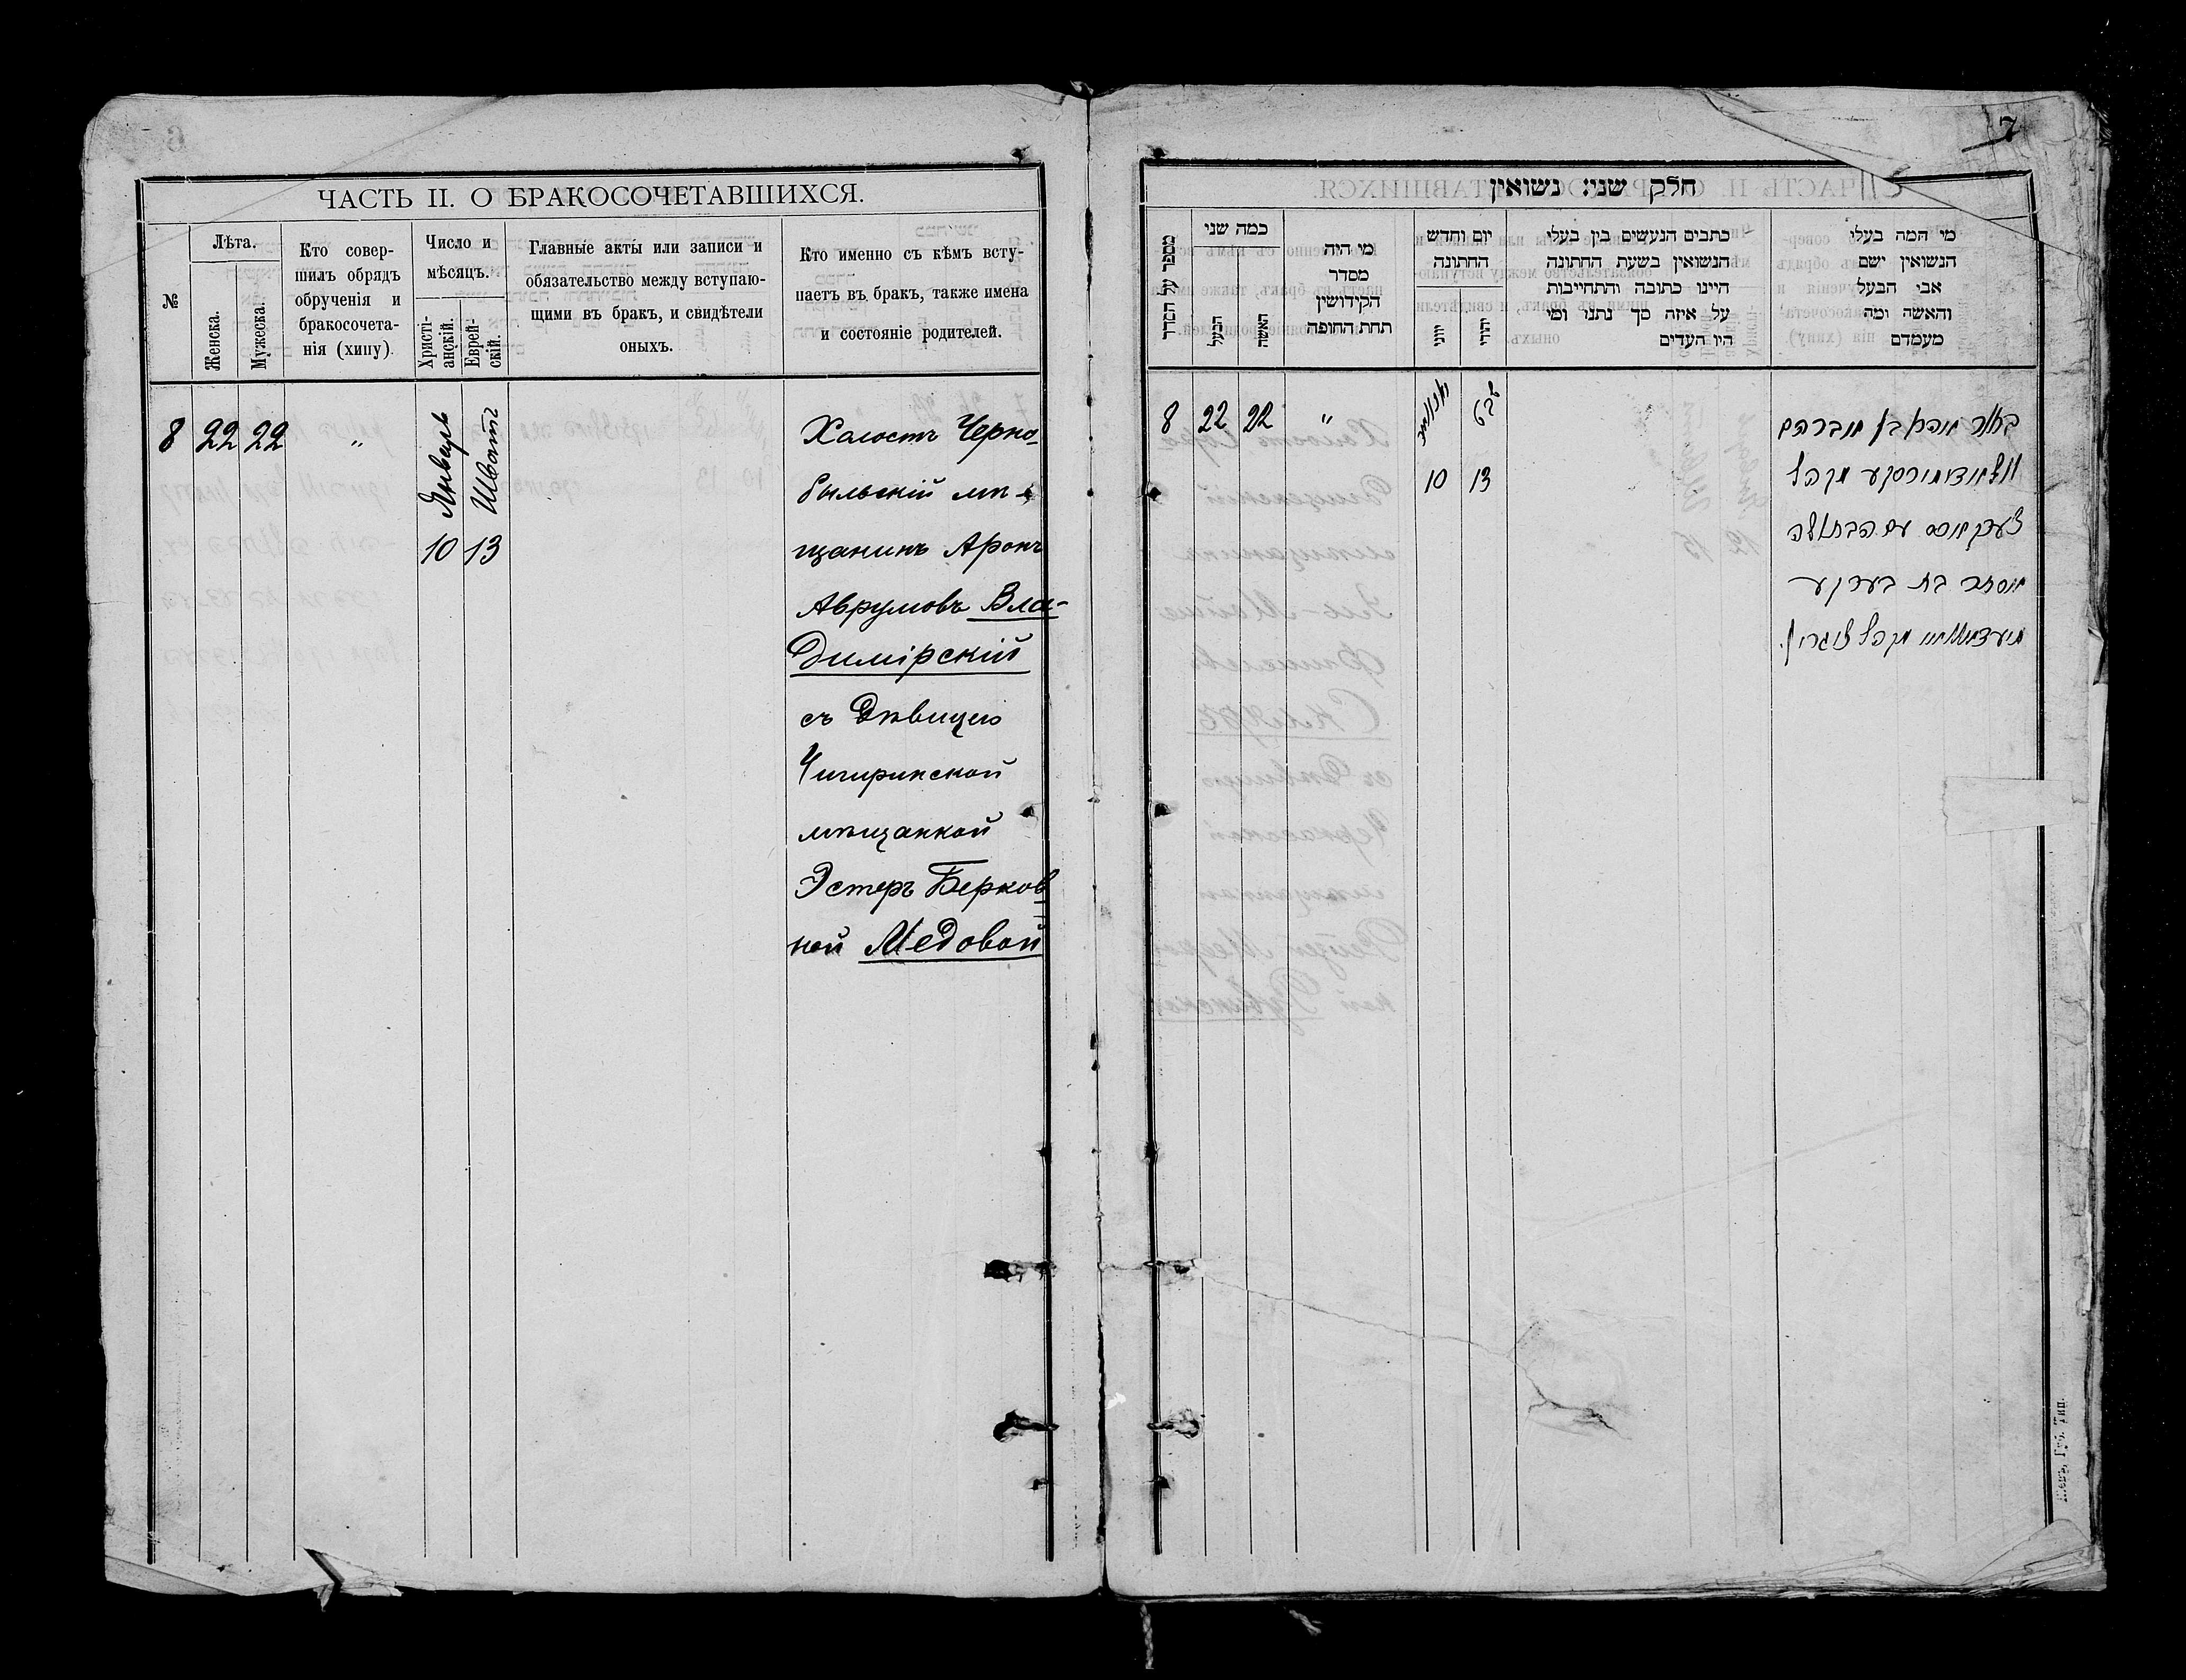 ЧАСТЬ II. О БРАКОСОЧЕТАВШИХСЯ.
№
Лѣта.
Женска.
Мужеска.
Кто совер-
шилъ обрядъ
обрученія и
бракосочета-
нія (хипу).
Число и
мѣсяцъ.
Христі-
анскій.
Еврей-
скій.
Главные акты или записи и
обязательство между вступаю-
щими въ бракъ, и свидѣтели
оныхъ.
Кто именно съ кѣмъ всту-
паетъ въ бракъ, также имена
и состояніе родителей.
8 22 22 "
Январь
10
Шватъ
13
Холостъ Черно-
быльскій мѣ-
щанинъ Аронъ
Аврумовъ Вла-
димірскій
съ дѣвицею
Чигиринской
мѣщанкой
Эстеръ Берков
ной Медовой
7
חלק שני: נשואין
מספר על הסדר
כמה שני
הבעל
האשה
מי היה
מסדר
הקידושין
תחת החופה
יום וחדש
החתונה
יווני
יהודי
כתבים הנעשים בין בעלי
הנשואין בשעת החתונה
היינו כתובה והתחייבות
על איזה סך נתנו ומי
היו העדים
מי המה בעלי
הנשואין ושם
אבי הבעל
והאשה ומה
מעמדם
8 22 22 "
יאנוואר
10
שבט
13
בחור אהרן בן אברהם
וולאדימירסקע מקהל
עם הבתולה
אסתר בת בערקע
מקהל